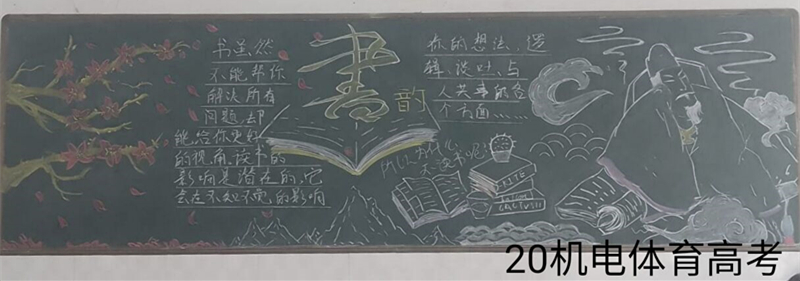 书虽然
不能帮你
解决所有
问题,却
能给你更好
的视角,读书的
影响是潜在的,它
会在不知不觉的影响
書
韵
你的想法、逻
辑、谈吐、与
人共事的各
个方面……
为什么
不读书呢
20机电体育高考